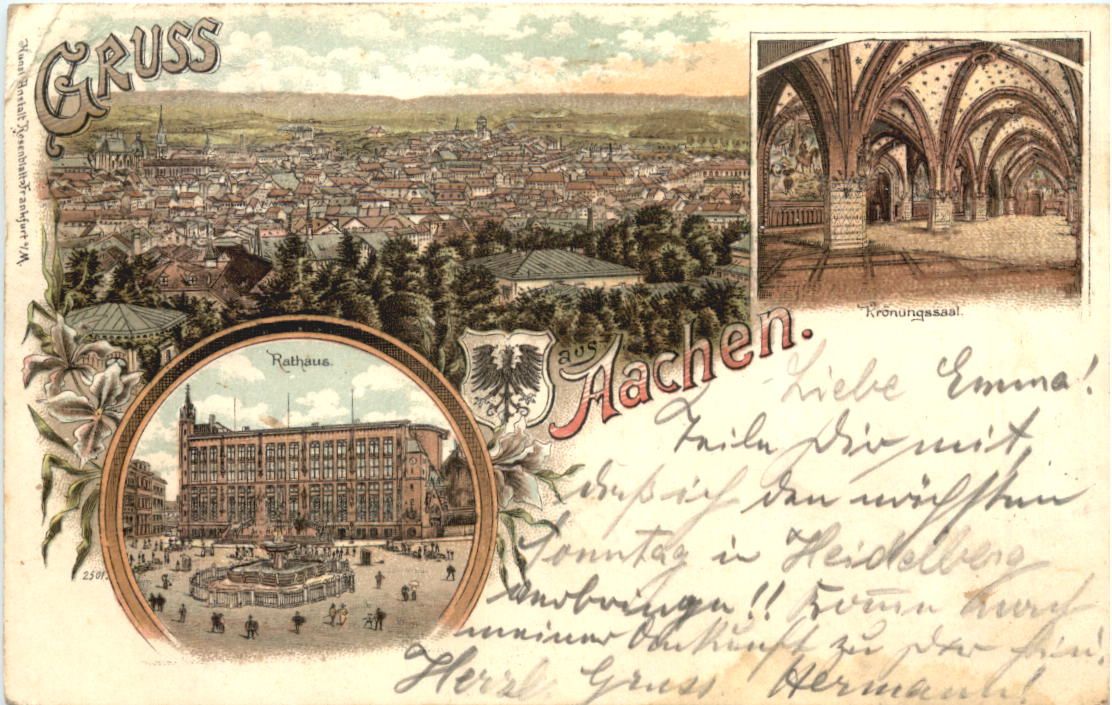 GRUSS
aus
Aachen.
Kunst Anstalt Rosenblatt Frankfurt a/M.
Krönungssaal.
Rathaus.
2501.
Liebe Emma!
Teile Dir mit,
daß ich den nächsten
Sonntag in Heidelberg
verbringe!! Komme nach
meiner Ankunft zu Dir hin.
Herzl. Gruss Hermann!